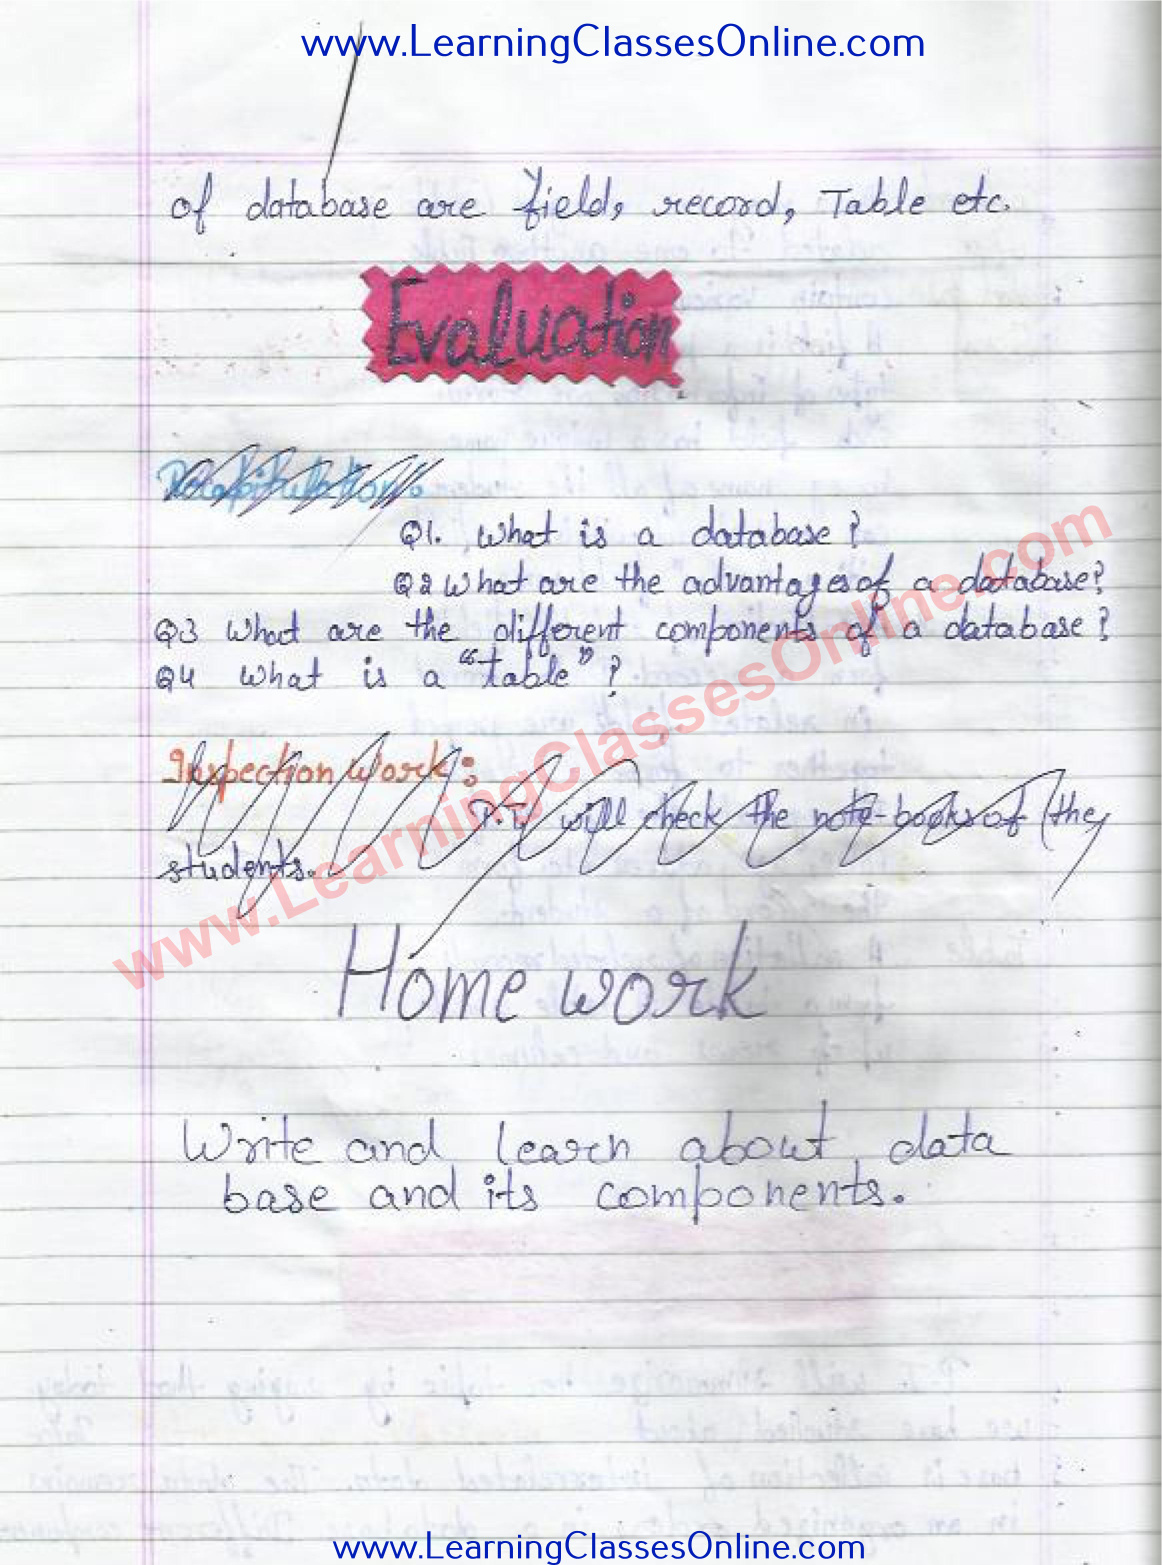 www.LearningClassesOnline.com
of database are field, record, Table etc.
Evaluation
Recapitulation:
Q1. What is a database?
Q2 What are the advantages of a database?
Q3 What are the different components of a database?
Q4 What is a "table" ?
Inspection work:
P.T. will check the note-books of the
students.
www.LearningClassesOnline.com
Home work
Write and learn about data
base and its components.
www.LearningClassesOnline.com